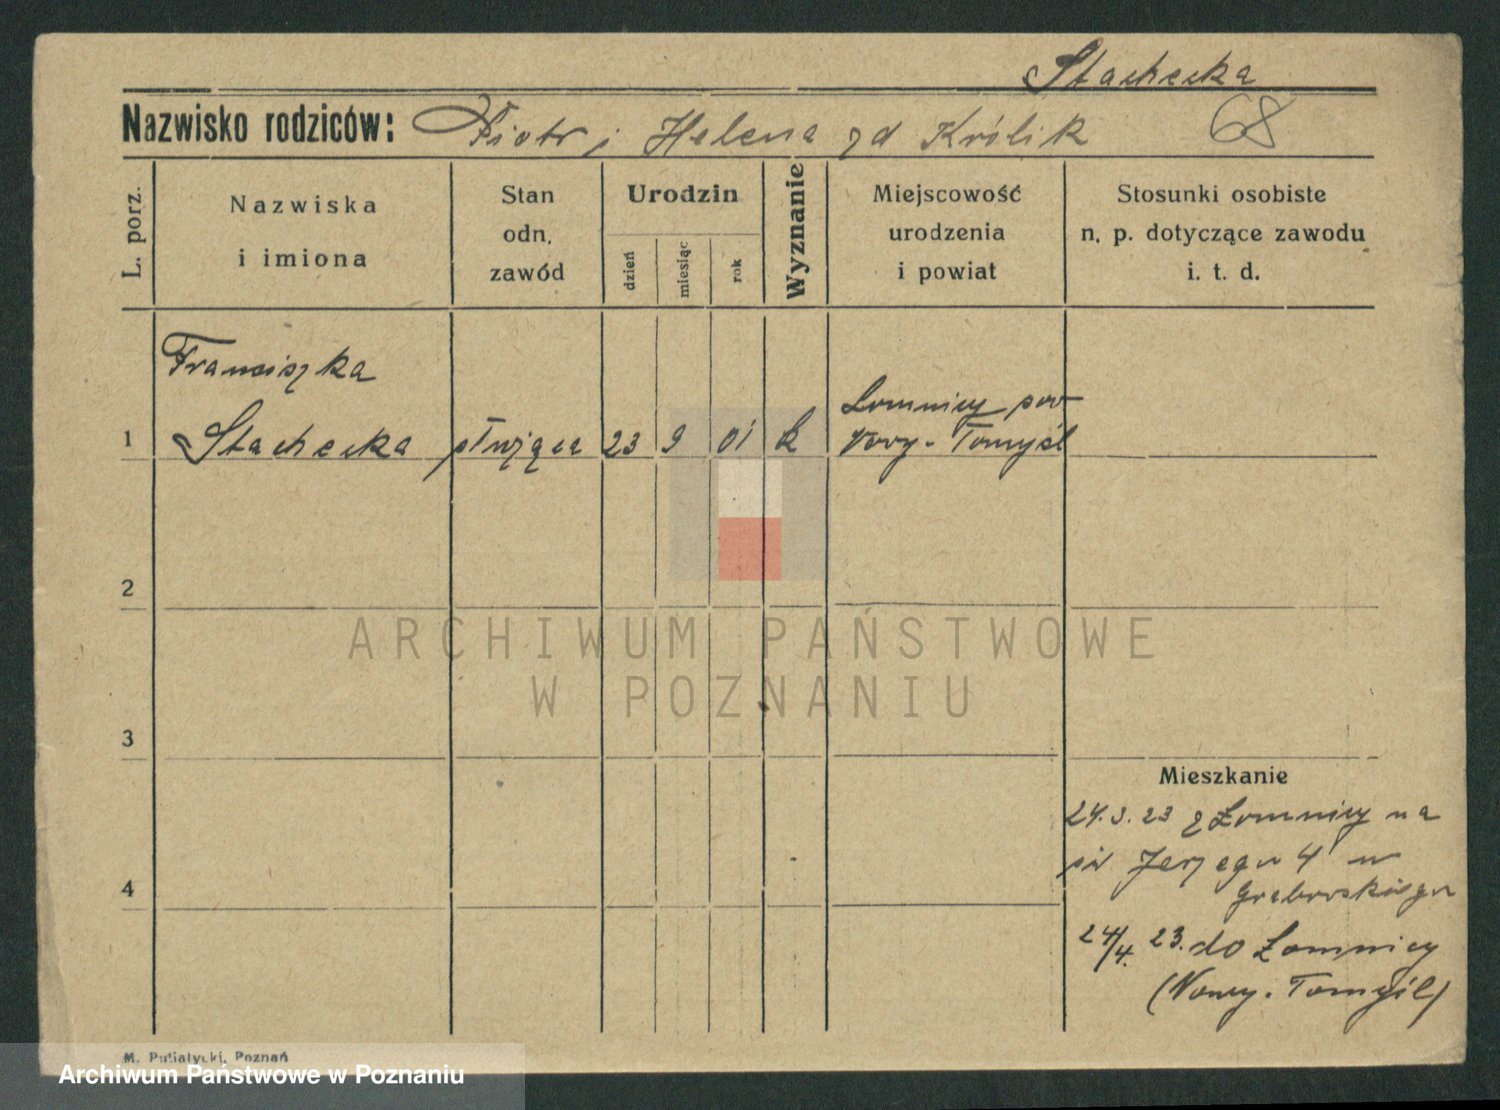 Stachecka
Nazwisko rodziców: Piotr i Helena zd Królik 68
L. porz.
Nazwiska
i imiona
Stan
odn.
zawód
Urodzin
dzień
miesiąc
rok
Wyznanie
Miejscowość
urodzenia
i powiat
Stosunki osobiste
n. p. dotyczące zawodu
i. t. d.
Franciszka
1 Stachecka służąca 23 9 01 k Łomnicy pow
Nowy-Tomyśl
2
ARCHIWUM PAŃSTWOWE
W POZNANIU
3
Mieszkanie
24.3.23 z Łomnicy na
św Jerzego 4 u
Grabowskiego
4
24/4. 23. do Łomnicy
(Nowy-Tomyśl)
M. Putiatycki, Poznań
Archiwum Państwowe w Poznaniu